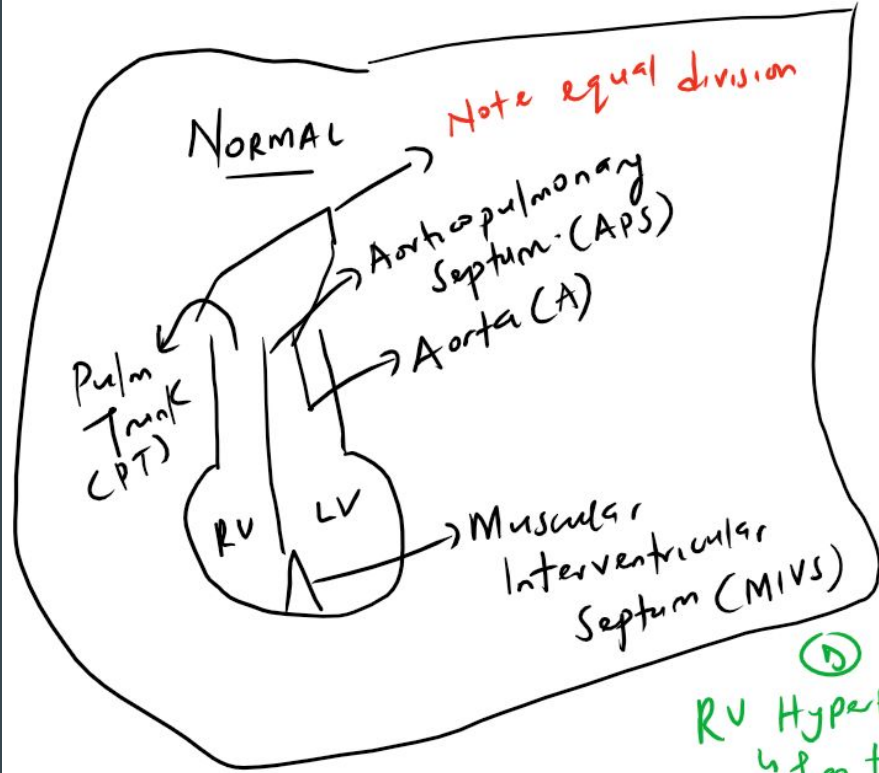 NORMAL
Note equal division
Aorticopulmonary
Septum (APS)
Aorta (A)
Pulm
Trunk
(PT)
RV
LV
Muscular
Interventricular
Septum (MIVS)
RV